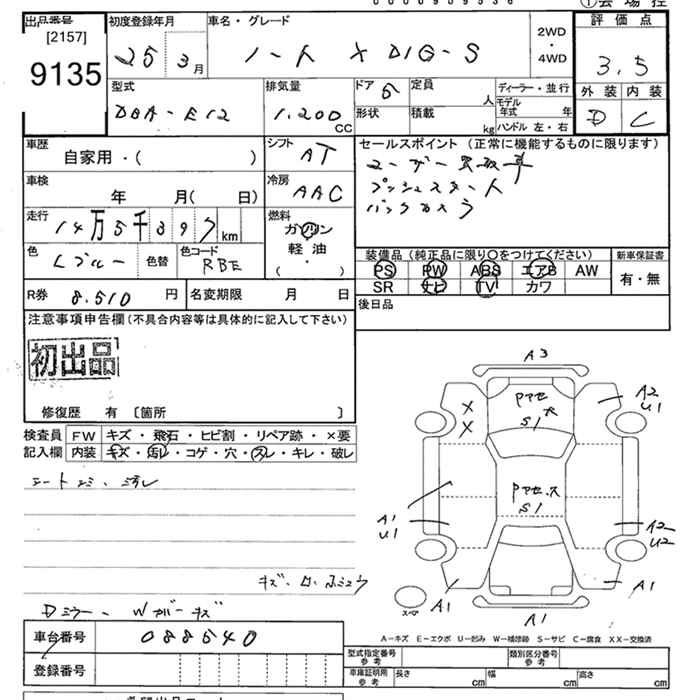 出品番号
[2157]
9135
初度登録年月
25 3月
車名・グレード
ノート X DIG-S
2WD
・
4WD
評価点
3.5
外装 内装
D C
型式
DBA-E12
排気量
1,200
CC
ドア 5
形状
定員
人
積載
kg
ディーラー・並行
モデル
年式 年
ハンドル 左・右
車歴
自家用・( )
シフト
AT
車検
年 月( 日)
冷房
AAC
走行
14万5千397km
燃料
ガソリン
軽油
( ・ )
色
Lブルー
色替
色コード
RBE
R券 8.510 円
名変期限 月 日
セールスポイント (正常に機能するものに限ります)
ユーザー買取車
プッシュスタート
バックカメラ
装備品 (純正品に限り○をつけてください)
PS PW ABS エアB AW
SR ナビ TV カワ
新車保証書
有・無
後日品
注意事項申告欄(不具合内容等は具体的に記入して下さい)
初出品
修復歴 有 〔箇所 〕
検査員
記入欄
FW キズ・飛石・ヒビ割・リペア跡・×要
内装 キズ・汚レ・コゲ・穴・スレ・キレ・破レ
A3
Pアセ
S1
X
X
A2
U1
S1
A1
U1
A2
U2
A1
A1
A1
A-キズ E-エクボ U-凹み W-補修跡 S-サビ C-腐食 XX-交換済
Dミラー Wカバーキズ
車台番号 088640
登録番号
型式指定番号
参考
類別区分番号
参考
車庫証明用
参考
長さ cm
幅 cm
高さ cm